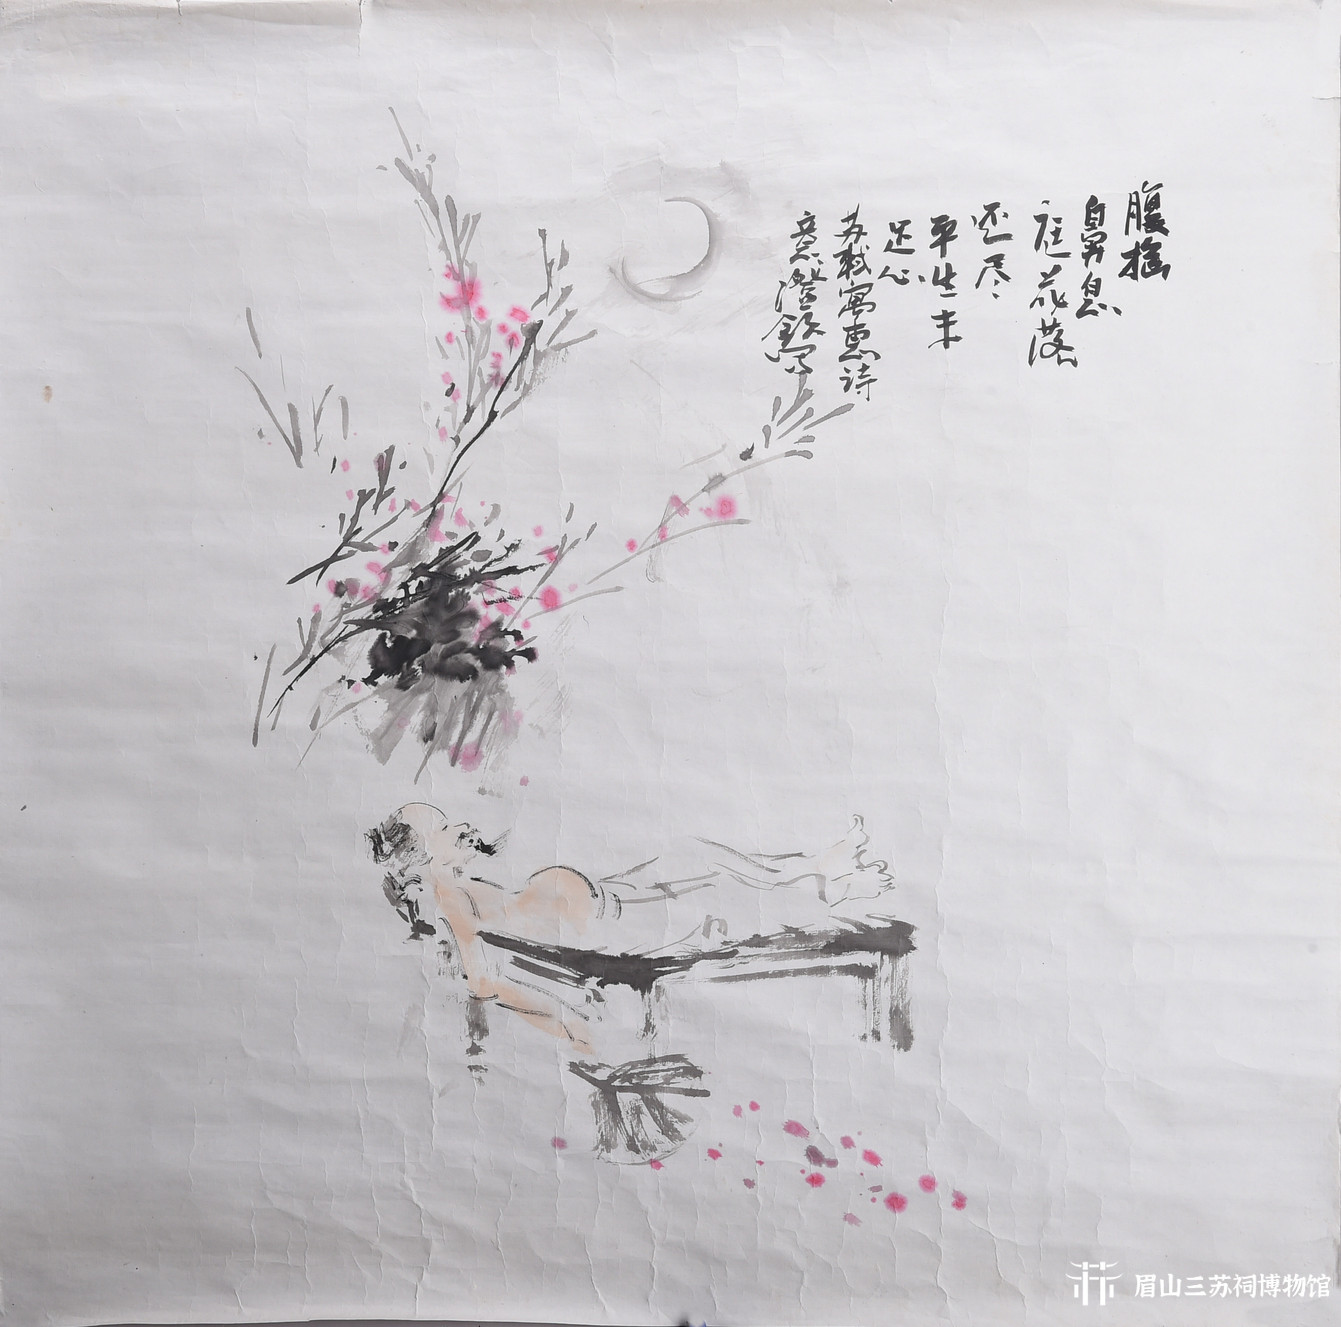 腹摇
鼻息
庭花落
还尽
平生未
足心
苏轼寓惠诗
意澄钦写
眉山三苏祠博物馆